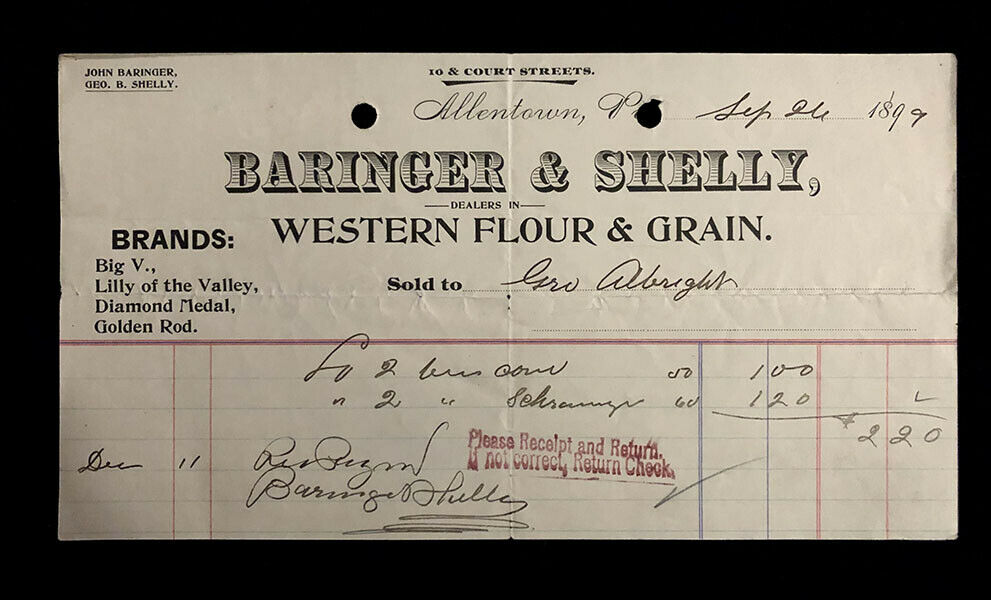 JOHN BARINGER,
GEO. B. SHELLY.
10 & COURT STREETS.
Allentown, Pa Sep 26 1899
BARINGER & SHELLY,
DEALERS IN
WESTERN FLOUR & GRAIN.
BRANDS:
Big V.,
Lilly of the Valley,
Diamond Medal,
Golden Rod.
Sold to Geo Albright
To 2 bus corn 50 100
" 2 " 60 120
$ 220
Please Receipt and Return.
If not correct, Return Check.
Dec 11
Baringer & Shelly